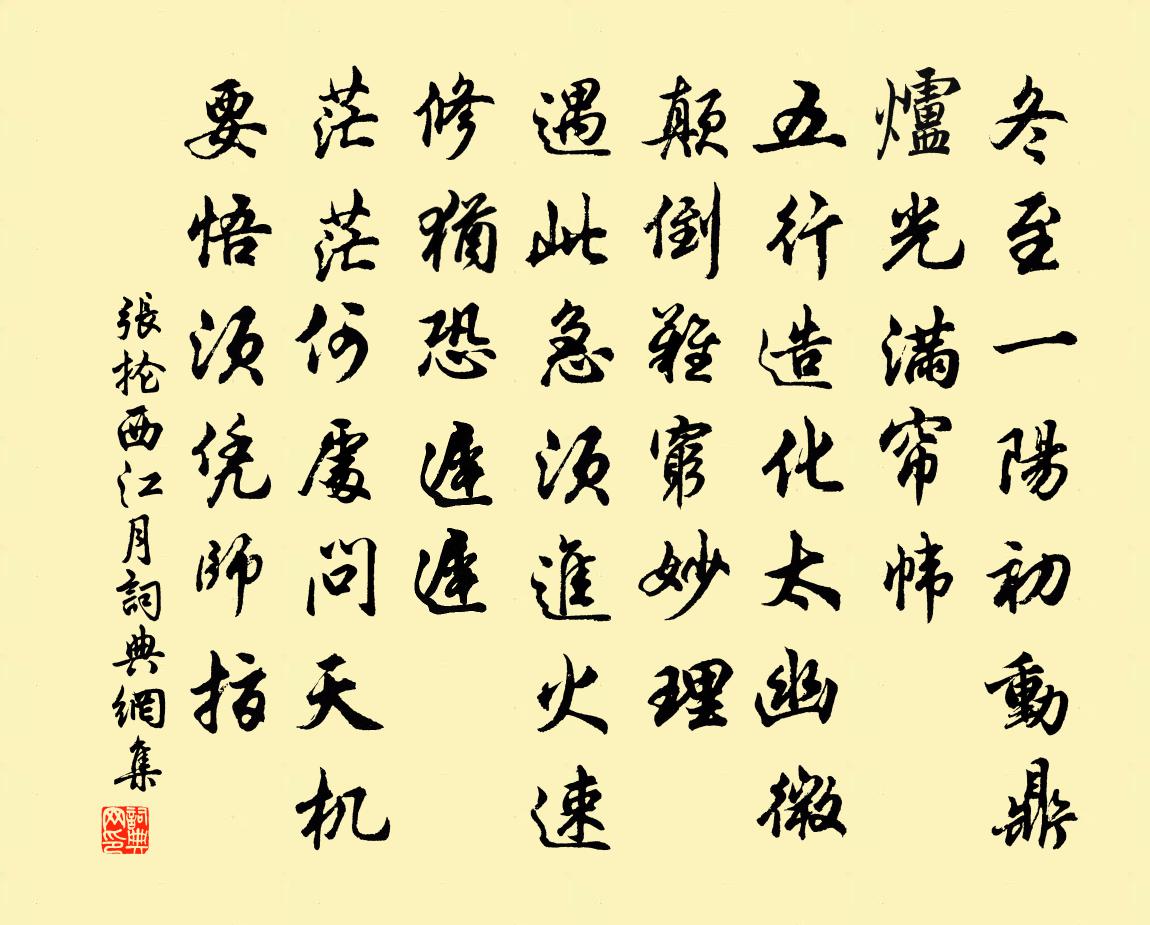 冬至一陽初動鼎
爐光滿帘幃
五行造化太幽微
顛倒難窮妙理
遇此急須進火速
修猶恐遲遲
茫茫何處問天机
要悟須凭師指
張掄西江月詞典網集
詞典網印